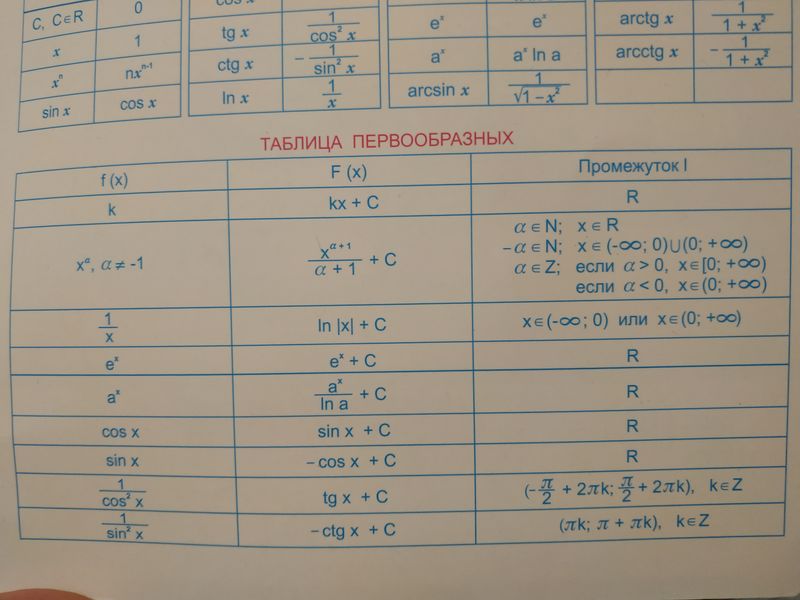 C, C∈R 0
x 1
xⁿ nxⁿ⁻¹
sin x cos x
cos x
tg x 1/cos² x
ctg x −1/sin² x
ln x 1/x
eˣ eˣ
aˣ aˣ ln a
arcsin x 1/√1−x²
arctg x 1/1 + x²
arcctg x −1/1 + x²
ТАБЛИЦА ПЕРВООБРАЗНЫХ
f (x) F (x) Промежуток I
k kx + C R
xᵅ, α ≠ -1 xᵅ⁺¹/α + 1 + C
α ∈ N; x ∈ R
−α ∈ N; x ∈ (-∞; 0)∪(0; +∞)
α ∈ Z; если α > 0, x∈[0; +∞)
если α < 0, x∈(0; +∞)
1/x ln |x| + C x∈(-∞; 0) или x∈(0; +∞)
eˣ eˣ + C R
aˣ aˣ/ln a + C R
cos x sin x + C R
sin x − cos x + C R
1/cos² x tg x + C (-π/2 + 2πk; π/2 + 2πk), k∈Z
1/sin² x − ctg x + C (πk; π + πk), k∈Z